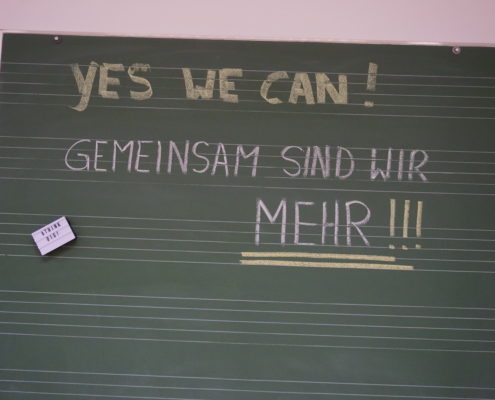 YES WE CAN!
GEMEINSAM SIND WIR
MEHR!!!